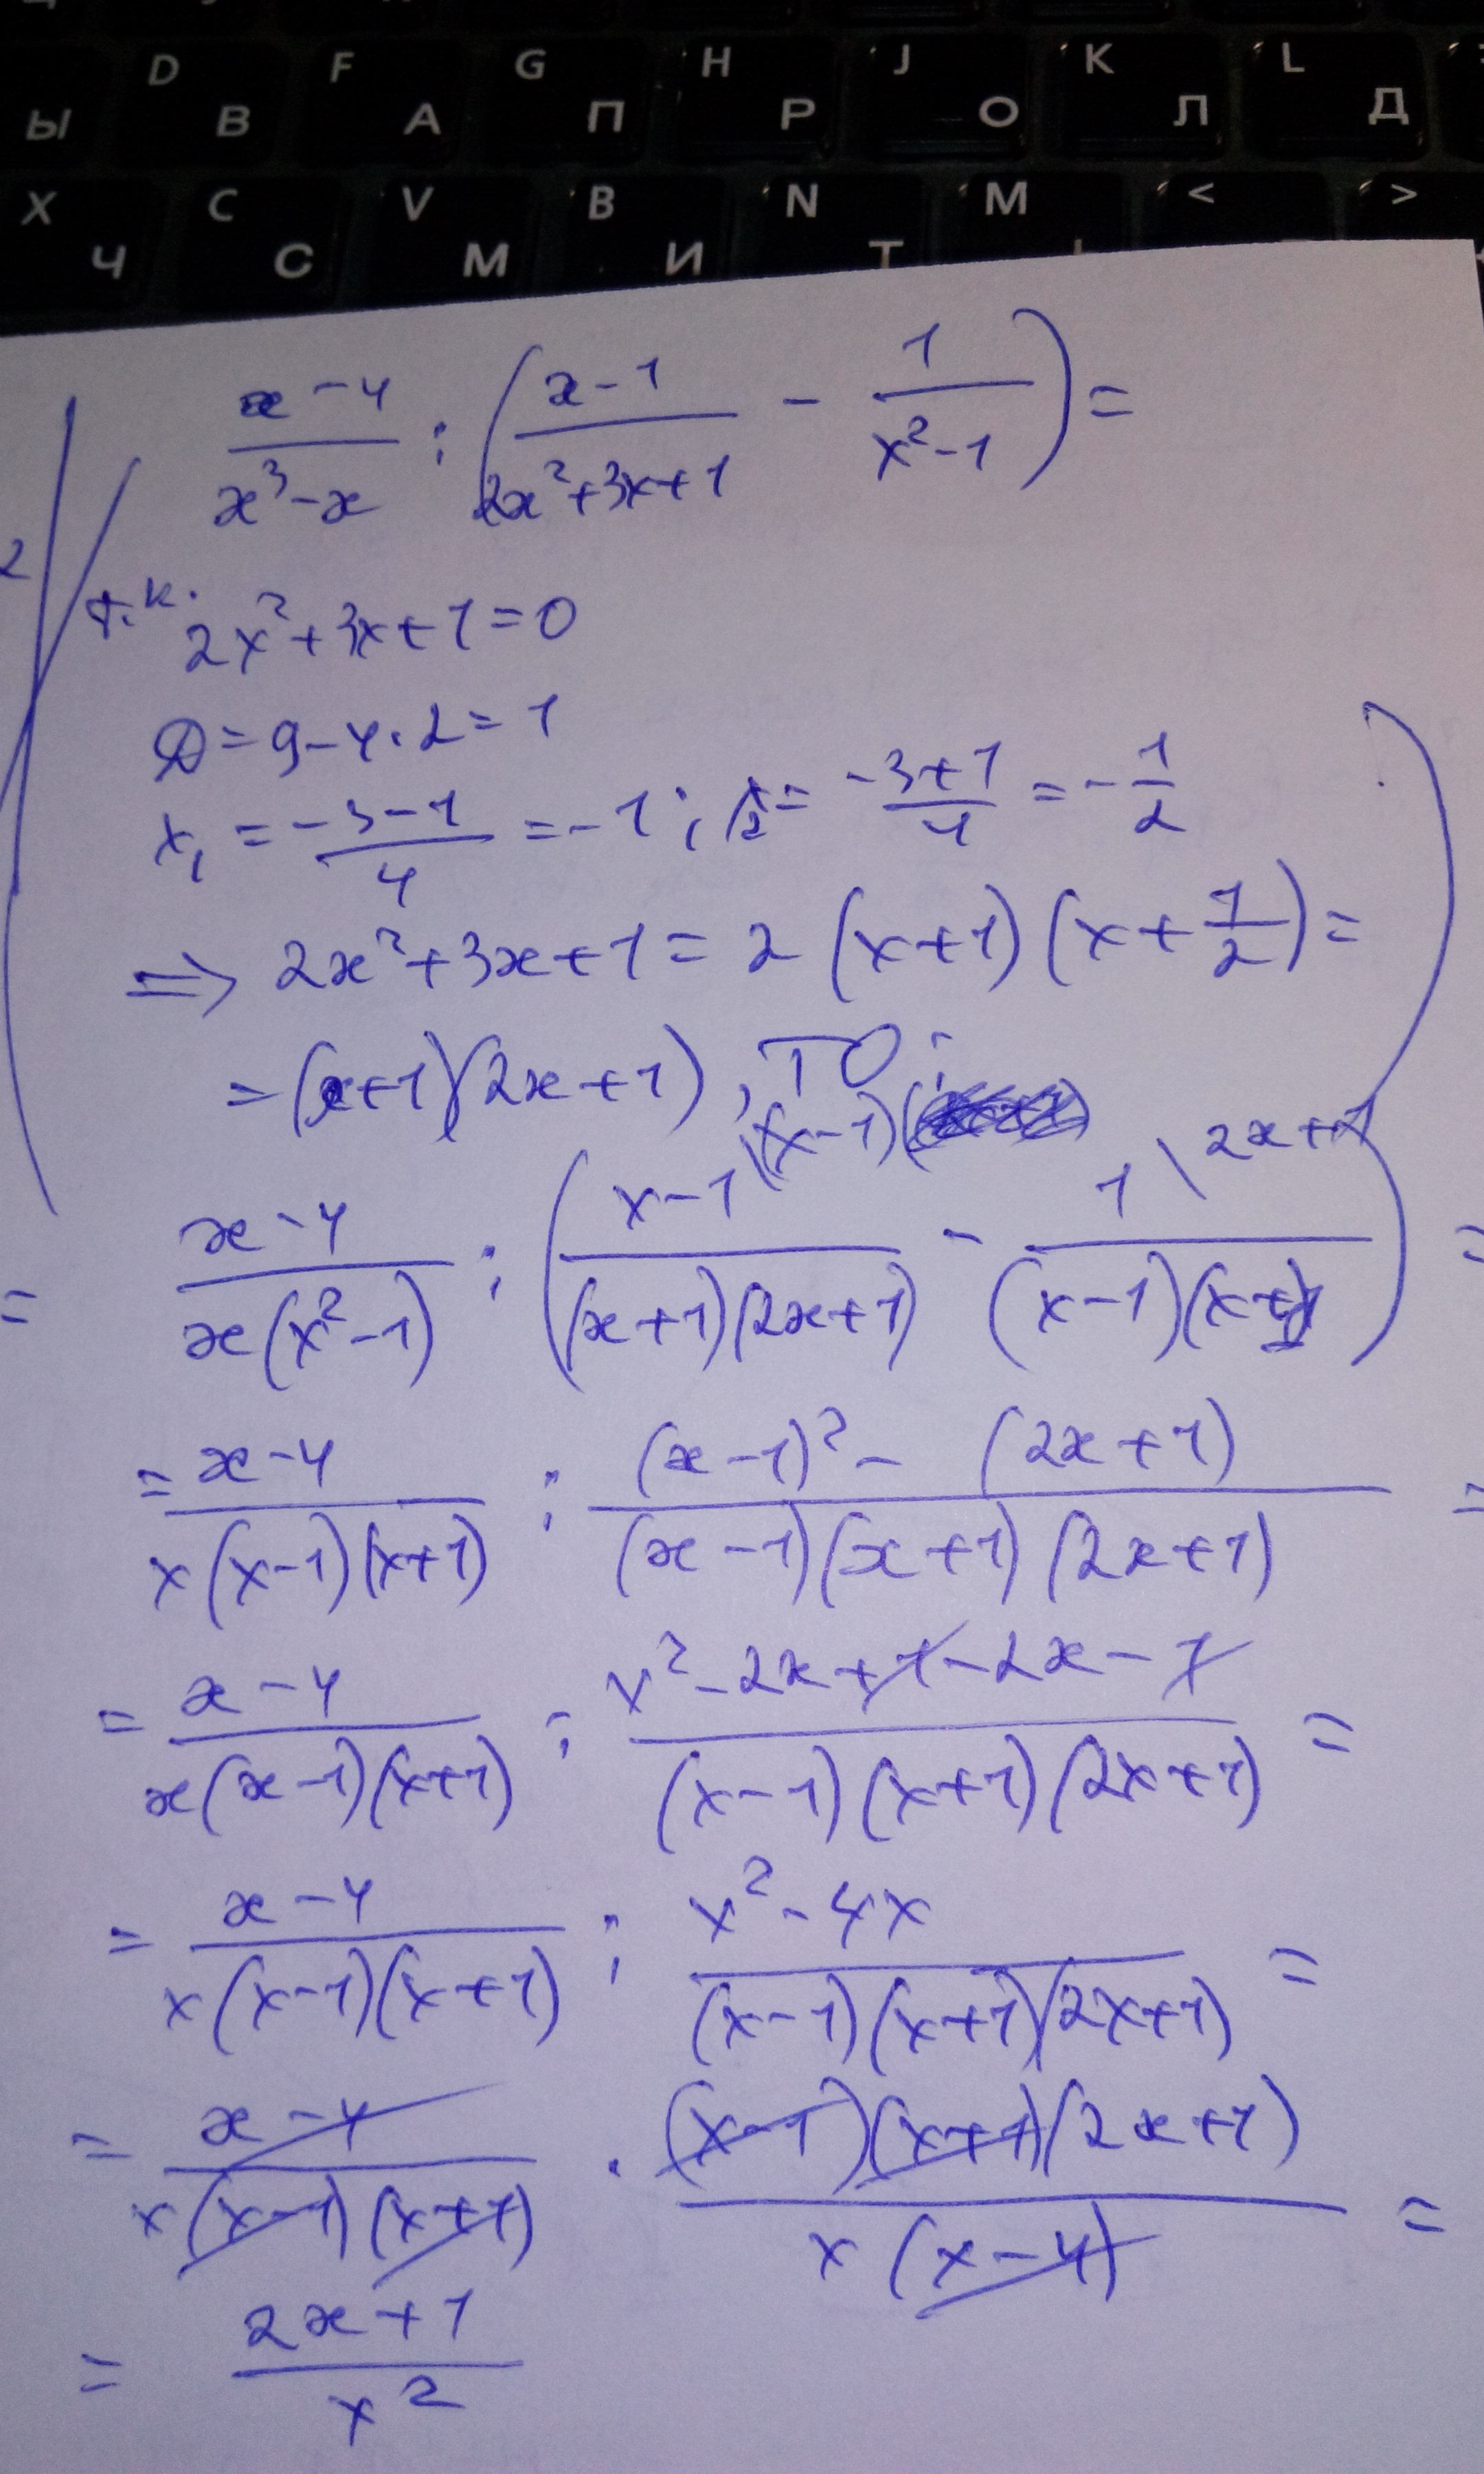 D F G H J K L
Ы В А П Р О Л Д
X C V B N M < >
Ч С М И Т
x-4/(x³-x) : ((x-1)/(2x²+3x+1) - 1/(x²-1)) =
2
т.к. 2x²+3x+1=0
D=9-4·2=1
x₁ = (-3-1)/4 = -1; x₂ = (-3+1)/4 = -1/2
⇒ 2x²+3x+1 = 2(x+1)(x+1/2) =
= (x+1)(2x+1), то:
= (x-4)/(x(x²-1)) : ((x-1)\(x-1)/((x+1)(2x+1)) - 1\2x+1/((x-1)(x+1))) =
= (x-4)/(x(x-1)(x+1)) : ((x-1)² - (2x+1))/((x-1)(x+1)(2x+1)) =
= (x-4)/(x(x-1)(x+1)) : (x²-2x+1-2x-1)/((x-1)(x+1)(2x+1)) =
= (x-4)/(x(x-1)(x+1)) : (x²-4x)/((x-1)(x+1)(2x+1)) =
= (x-4)/(x(x-1)(x+1)) · ((x-1)(x+1)(2x+1))/(x(x-4)) =
= (2x+1)/x²